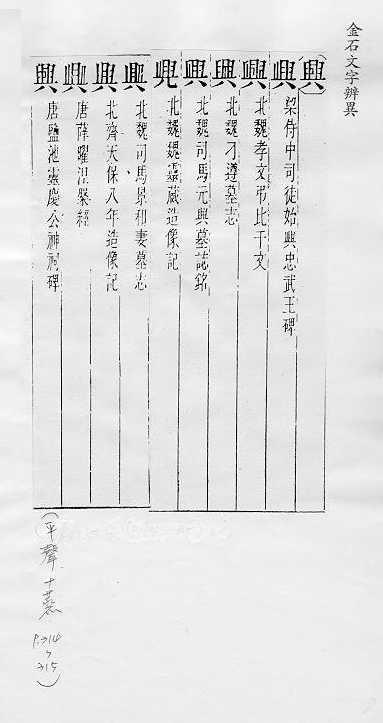 金石文字辨異
興
興 梁侍中司徒始興忠武王碑
興 北魏孝文弔比干文
興 北魏刁遵墓志
興 北魏司馬元興墓誌銘
北魏魏靈藏造像記
北魏司馬景和妻墓志
北齊天保八年造像記
唐薛曜涅槃經
興 唐鹽池靈慶公神祠碑
(平聲 十蒸
P.314
315)